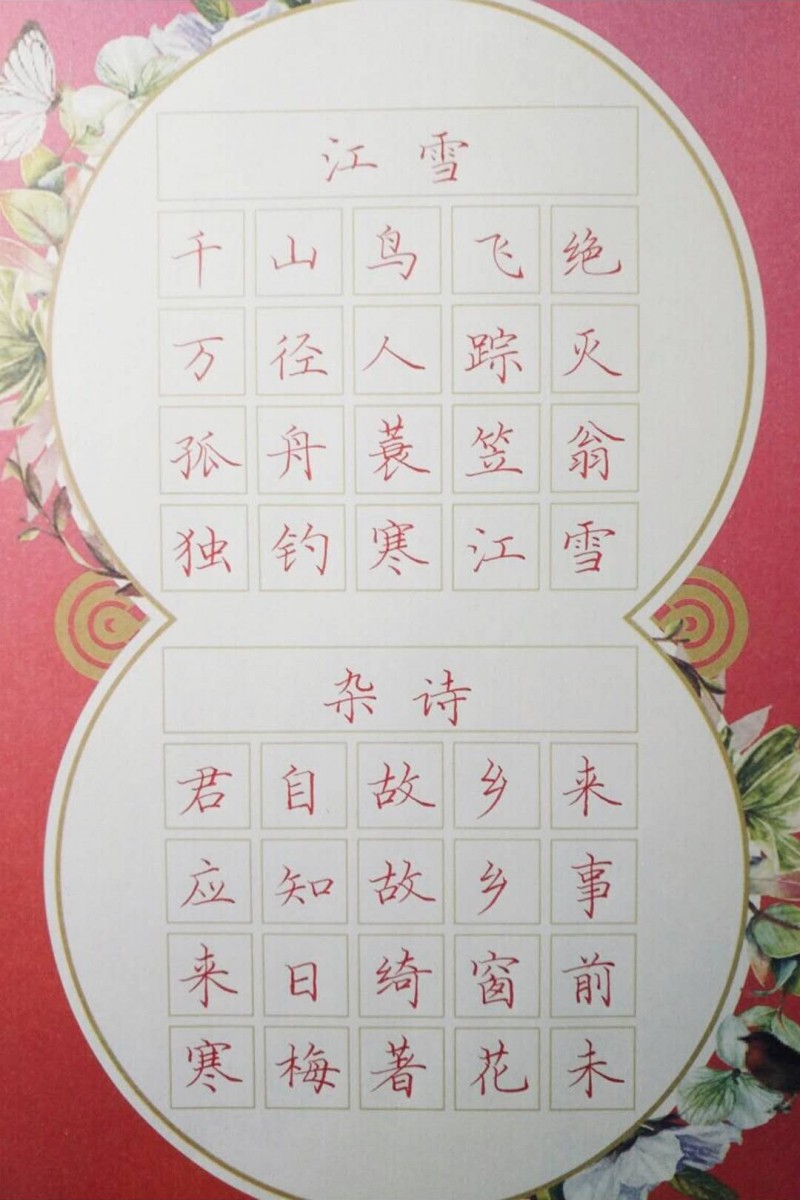 江雪
千山鸟飞绝
万径人踪灭
孤舟蓑笠翁
独钓寒江雪
杂诗
君自故乡来
应知故乡事
来日绮窗前
寒梅著花未